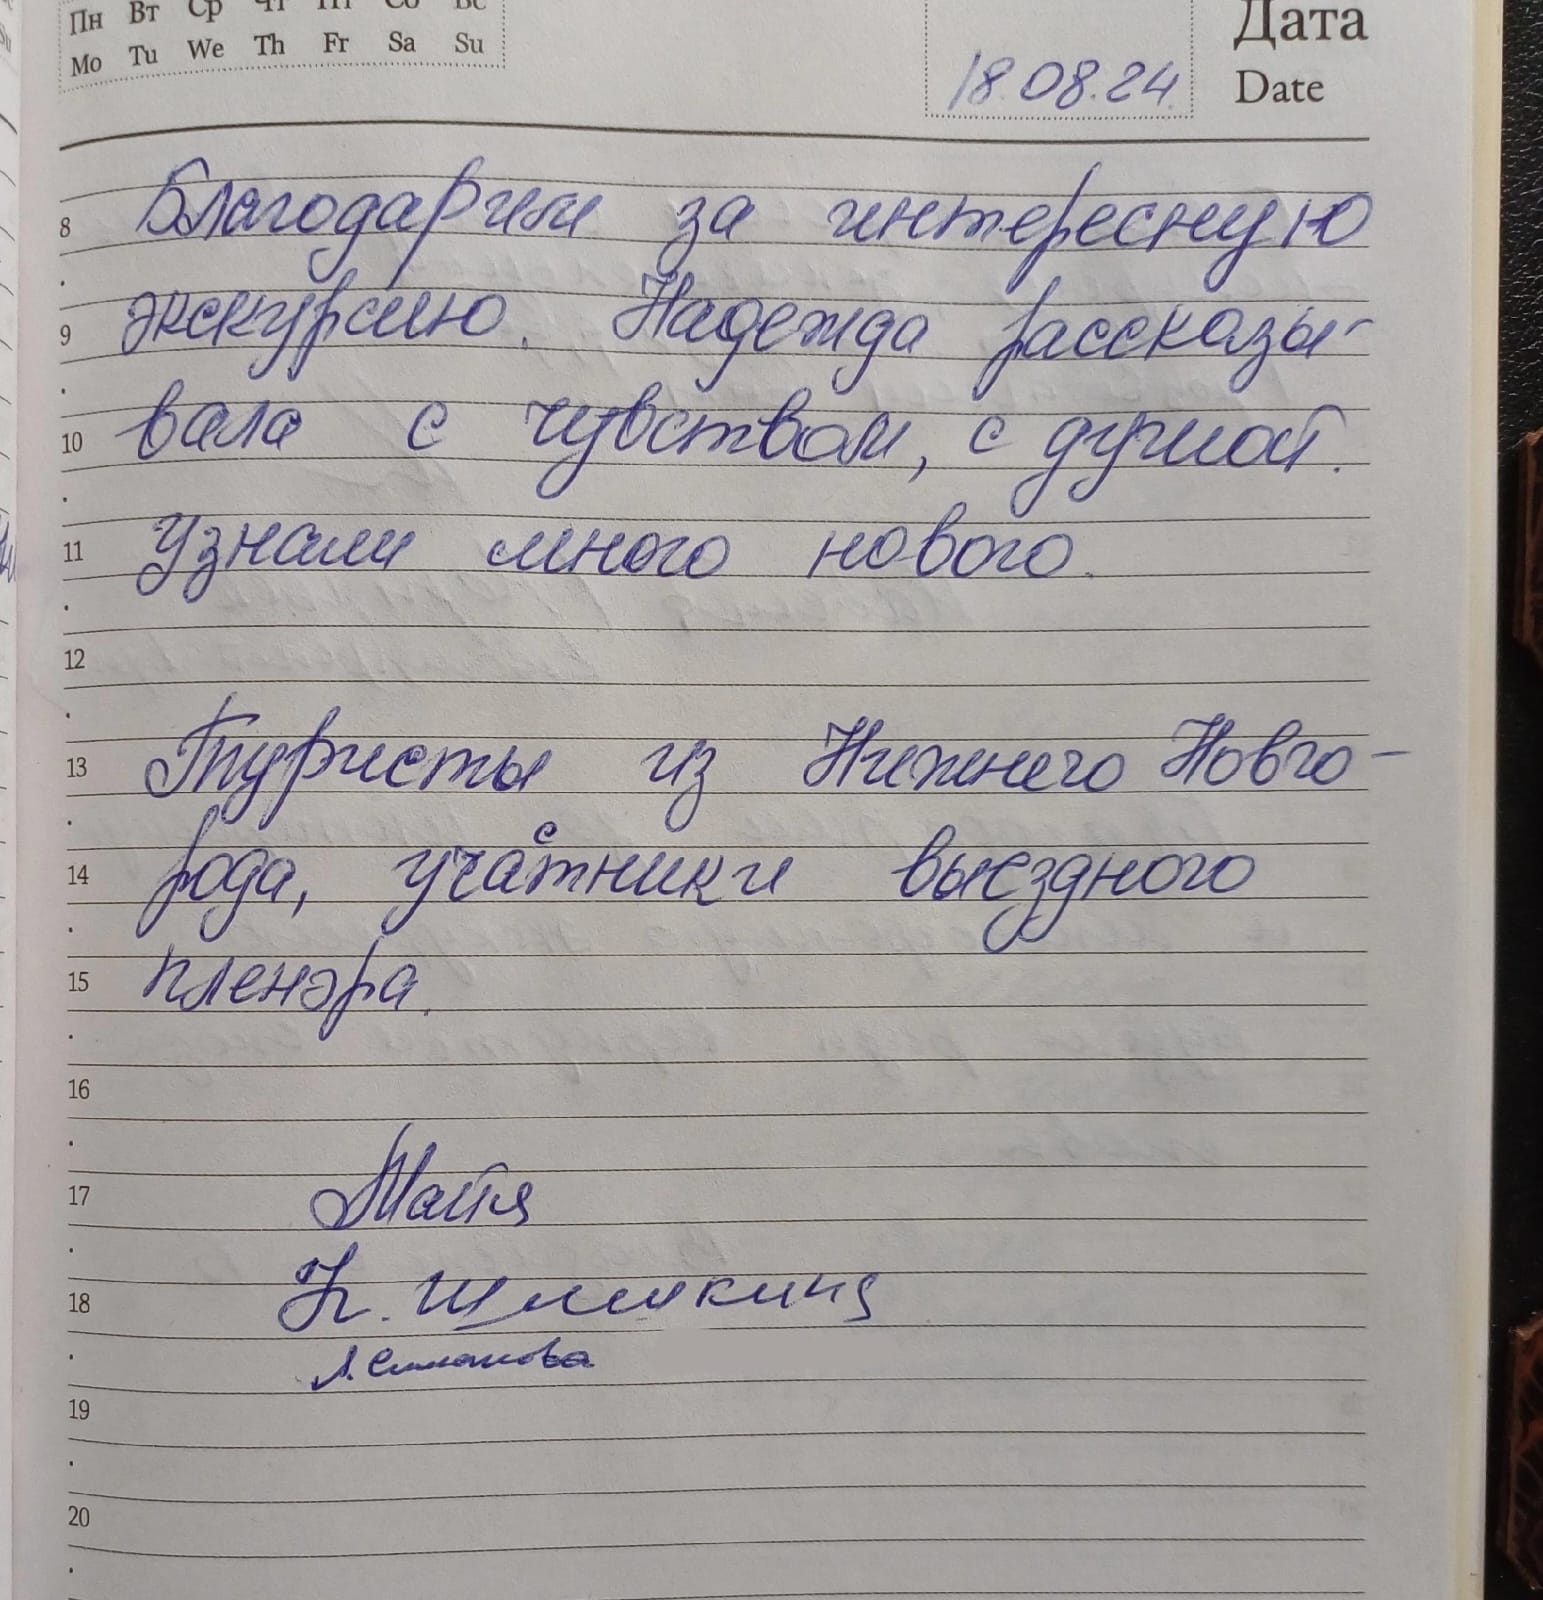 Пн Вт Ср Чт Пт Сб Вс
Mo Tu We Th Fr Sa Su
Дата
Date
18.08.24
8 Благодарим за интересную
9 экскурсию. Надежда рассказы-
10 вала с чувством, с душой.
11 Узнали много нового.
12
13 Туристы из Нижнего Новго-
14 рода, участники выездного
15 пленэра.
16
17 Майя
18 Н. Шлыкина
Л. Симакова
19
20